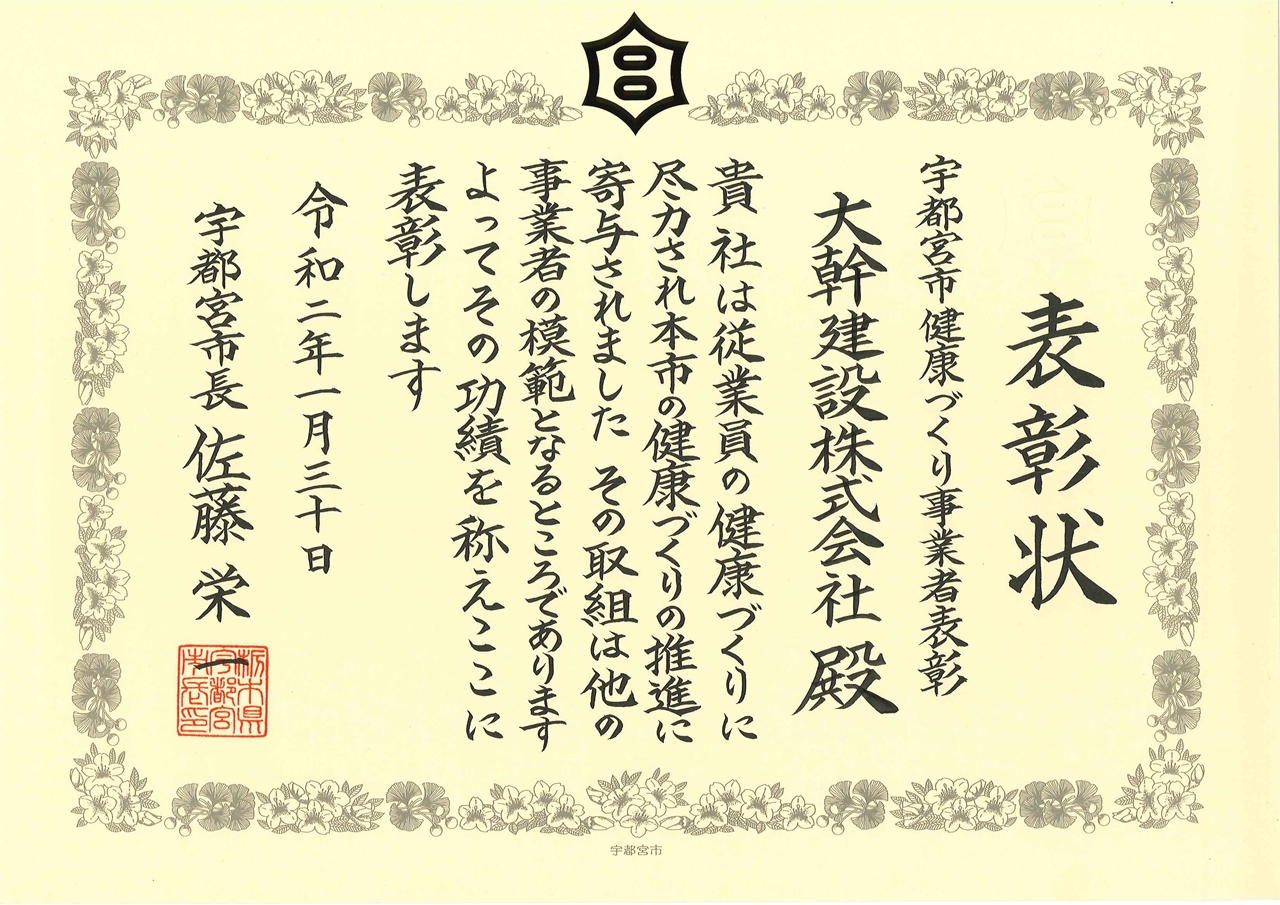 表彰状
宇都宮市健康づくり事業者表彰
大幹建設株式会社 殿
貴社は従業員の健康づくりに
尽力され本市の健康づくりの推進に
寄与されました その取組は他の
事業者の模範となるところであります
よってその功績を称えここに
表彰します
令和二年一月三十日
宇都宮市長 佐藤 栄一
栃木県
宇都宮
市長印
宇都宮市